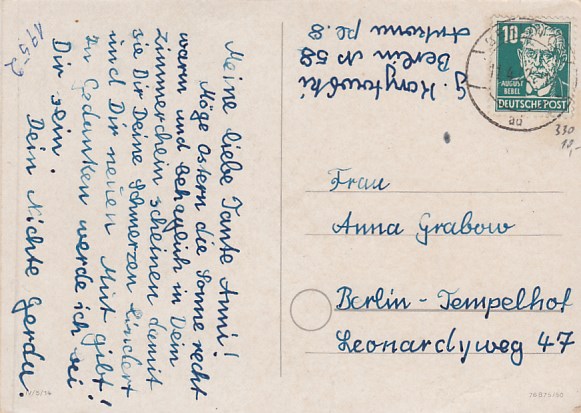 Meine liebe Tante Anni!
Möge Ostern die Sonne recht
warm und behaglich in Dein
Zimmerchein scheinen damit
sie Dir Deine Schmerzen lindert
und Dir neuen Mut gibt!
In Gedanken werde ich bei
Dir sein.
Dein Nichte Gerda.
Berlin N 58
10
AUGUST
BEBEL
DEUTSCHE POST
330
10,-
Frau
Anna Grabow
Berlin-Tempelhof
Leonardyweg 47